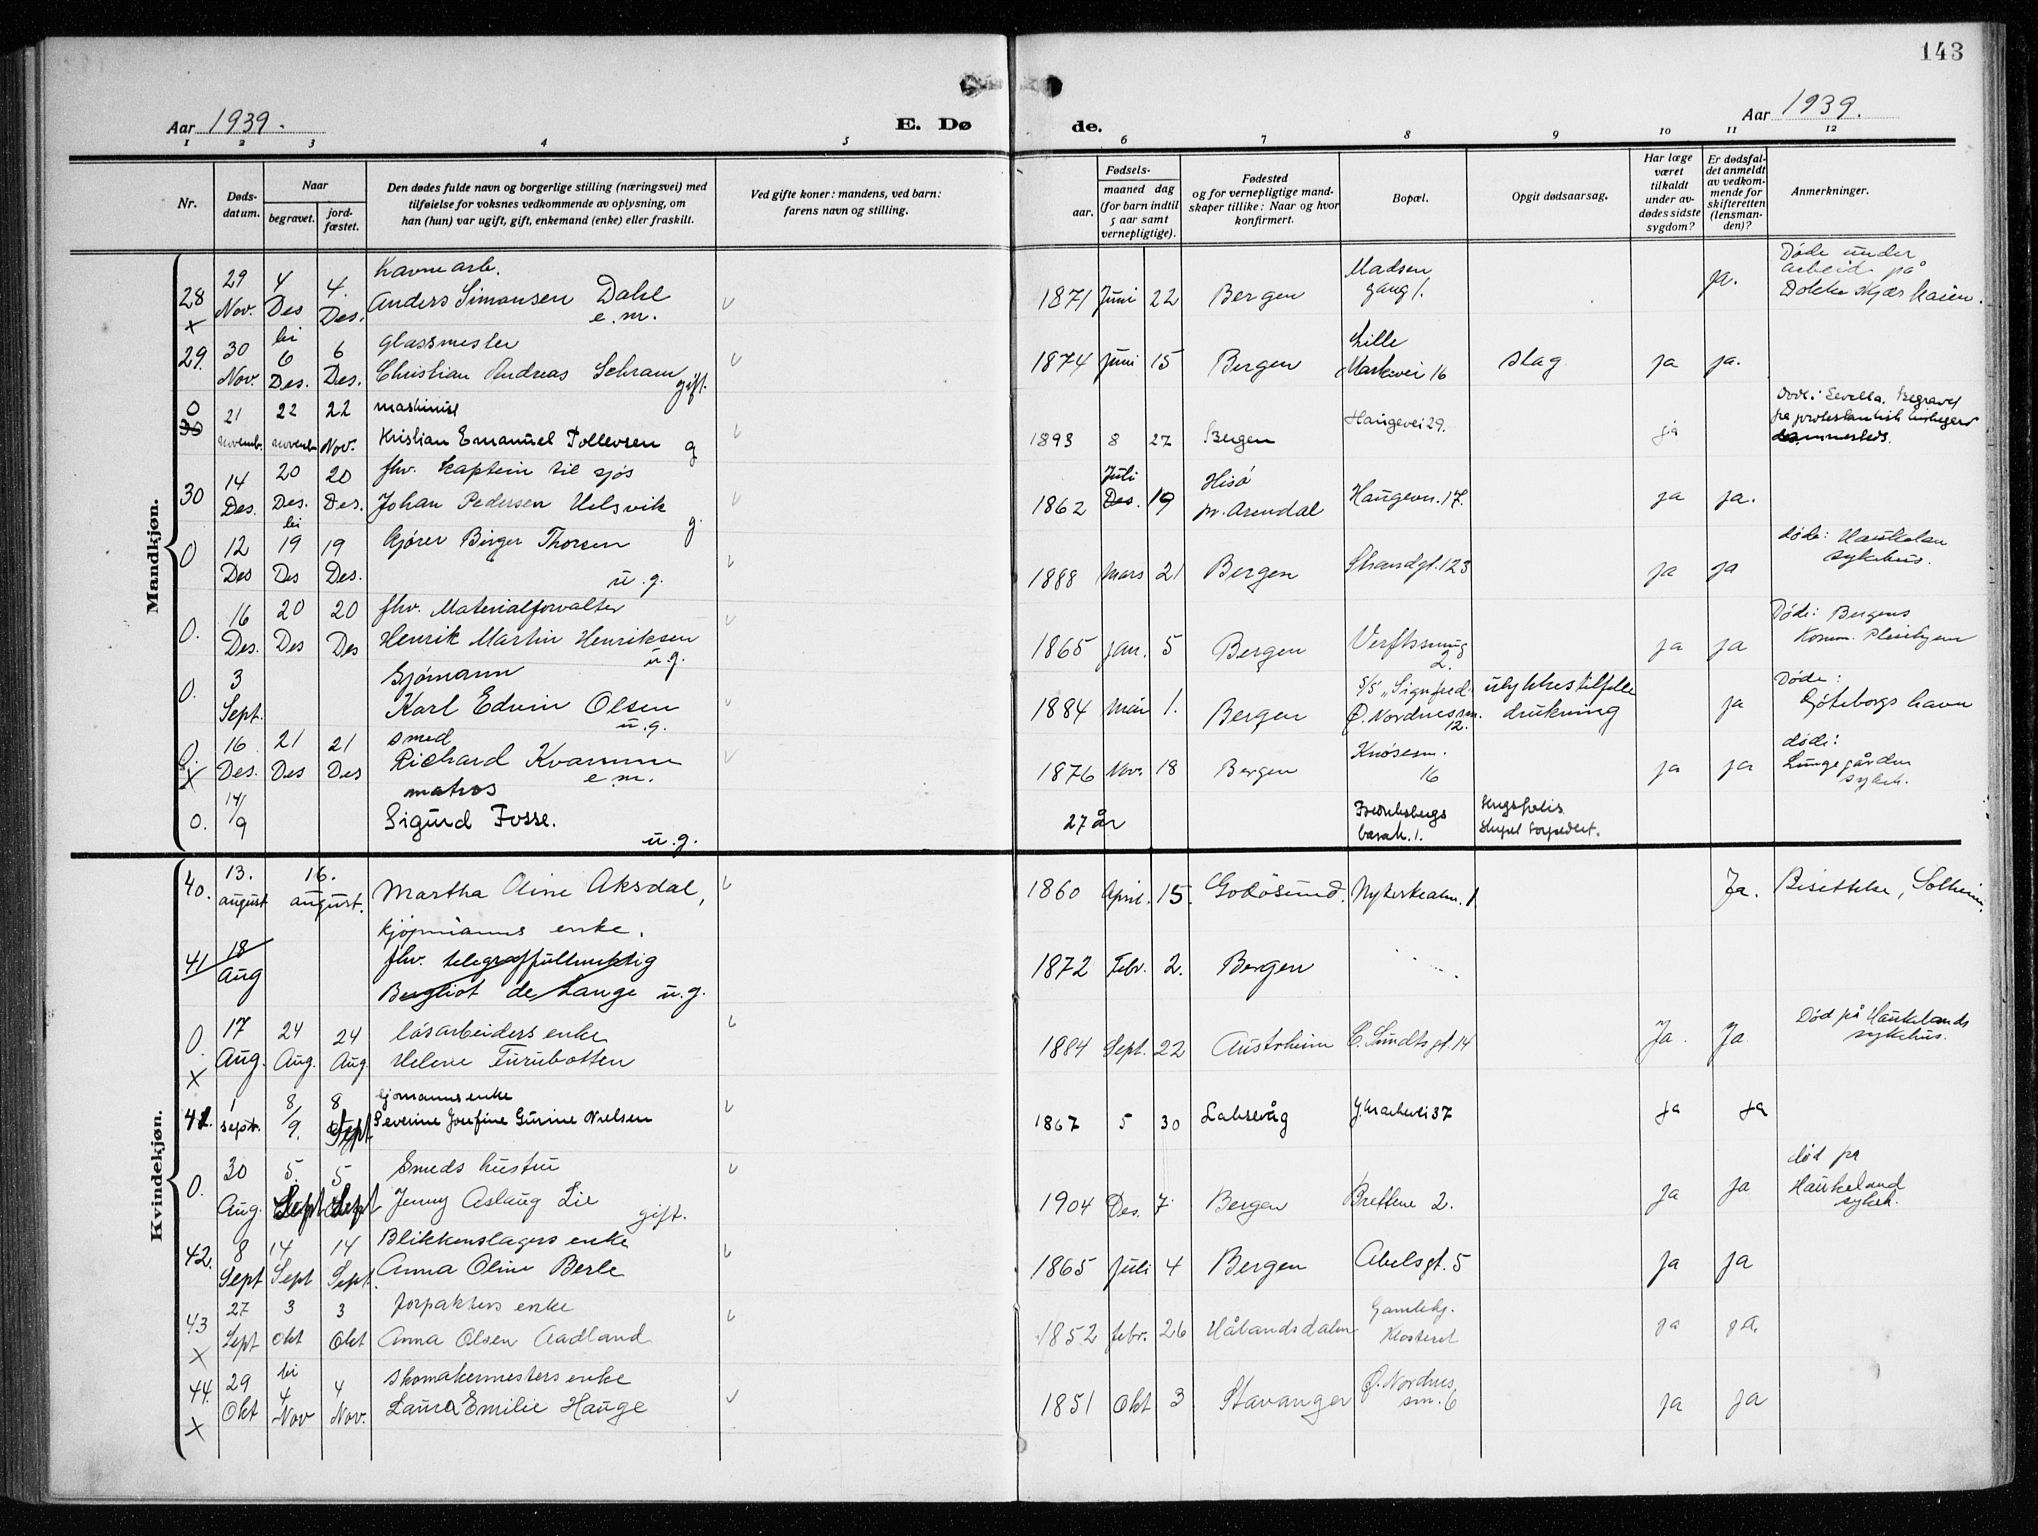 143
Aar 1939.
E. Døde.
Aar 1939.
1 2 3 4 5 6 7 8 9 10 11 12
Nr.
Døds-
datum.
Naar
begravet.
jord-
fæstet.
Den dødes fulde navn og borgerlige stilling (næringsvei) med
tilføielse for voksnes vedkommende av oplysning, om
han (hun) var ugift, gift, enkemand (enke) eller fraskilt.
Ved gifte koner: mandens, ved barn:
farens navn og stilling.
Fødsels-
aar.
maaned dag
(for barn indtil
5 aar samt
vernepligtige).
Fødested
og for vernepligtige mand-
skaper tillike: Naar og hvor
konfirmert.
Bopæl.
Opgit dødsaarsag.
Har læge
været
tilkaldt
under av-
dødes sidste
sygdom?
Er dødsfal-
det anmeldt
av vedkom-
mende for
skifteretten
(lensman-
den)?
Anmerkninger.
Mandkjøn.
28 x 29 Nov. 4 Des 4. Des. Havnearb.
Anders Simonsen Dahl e.m. 1871 Juni 22 Bergen Madsen
gang 1. ja. Døde under
arbeid på
Dokke skjær kaien.
29. 30 Nov. bei 6 Des. 6 Des. Glassmester
Christian Andreas Schram gift. 1874 Juni 15 Bergen Lille
Markevei 16 slag ja ja.
0 30 21 novemb. 22 novemb. 22 Nov. maskinist
Kristian Emanuel Tollevsen g 1893 8 27 Bergen Haugevei 29. ja Død i Sevilla. Begravet
på protestantisk kirkegård
sammesteds.
30 14 Des. 20 Des. 20 Des. fhv. kaptein til sjøs
Johan Pedersen Uelsvik g. 1862 Juli Des. 19 Hisø
pr. Arendal Haugevn. 17. ja ja.
0 12 Des bei 19 Des 19 Des. kjører Birger Thorsen
u.g. 1888 Mars 21 Bergen Strandgt. 123 ja ja døde: Haukeland
sykehus.
0. 16 Des. 20 Des 20 Des fhv. Materialforvalter
Henrik Martin Henriksen
u.g. 1865 jan. 5 Bergen Verftssmug
2. ja ja Døde: Bergens
Komm. Pleiehjem
0. 3 Sept. Sjømann
Karl Edvin Olsen
u.g. 1884 Mai 1. Bergen S/S "Sigurd
Ø. Nordnesm.
12. ulykkestilfelle
drukning ja Døde:
Göteborgs havn
0. x 16 Des. 21 Des 21 Des smed
Richard Kvamme
e.m. 1876 Nov. 18 Bergen Knøsesm.
16 ja ja døde:
Lungegården
sykeh.
0. 14/9 matros
Sigurd Fosse.
u.g. 27 år Fredriksbergs
barak. 1. Krigsforlis.
Skipet torpedert.
Kvindekjøn.
40. 13. august 16. august. Martha Oline Aksdal,
kjøpmanns enke. 1860 April. 15. Godøsund. Nykirkealm. 1. Ja. Bisettelse, Solheim.
41 18 Aug fhv. telegraffullmektig
Bergliot de Lange u.g. 1872 Febr. 2. Bergen
0. x 17 Aug. 24 Aug. 24 Aug. løsarbeiders enke
Helene Turubotten 1884 Sept. 22 Austrheim E. Sundtsgt. 14 Ja. Ja Død på Haukelands
sykehus.
41. 1 sept. 8/9. 8 Sept Sjømanns enke
Severine Josefine Gurine Nielsen 1867 5 30 Laksevåg 37 ja ja
0. 30 Aug. 5. Sept 5 Sept Smeds hustru
Jenny Aslaug Lie
gift. 1904 Des. 7 Bergen Brettene 2. ja ja død på
Haukeland
sykeh.
42. 8 Sept 14 Sept 14 Sept. Blikkenslagers enke
Anna Oline Berle 1865 Juli 4 Bergen Abelsgt. 5 ja ja
43 x 27 Sept 3 Okt 3 Okt forpakters enke
Anna Olsen Aadland 1852 febr. 26 Hålandsdalen Gamlehj.
Klosteret ja ja.
44. x 29 Okt bei 4 Nov 4 Nov. skomakermesters enke
Laura Emilie Hauge 1851 Okt 3 Stavanger Ø. Nordnes
sm. 6 ja ja